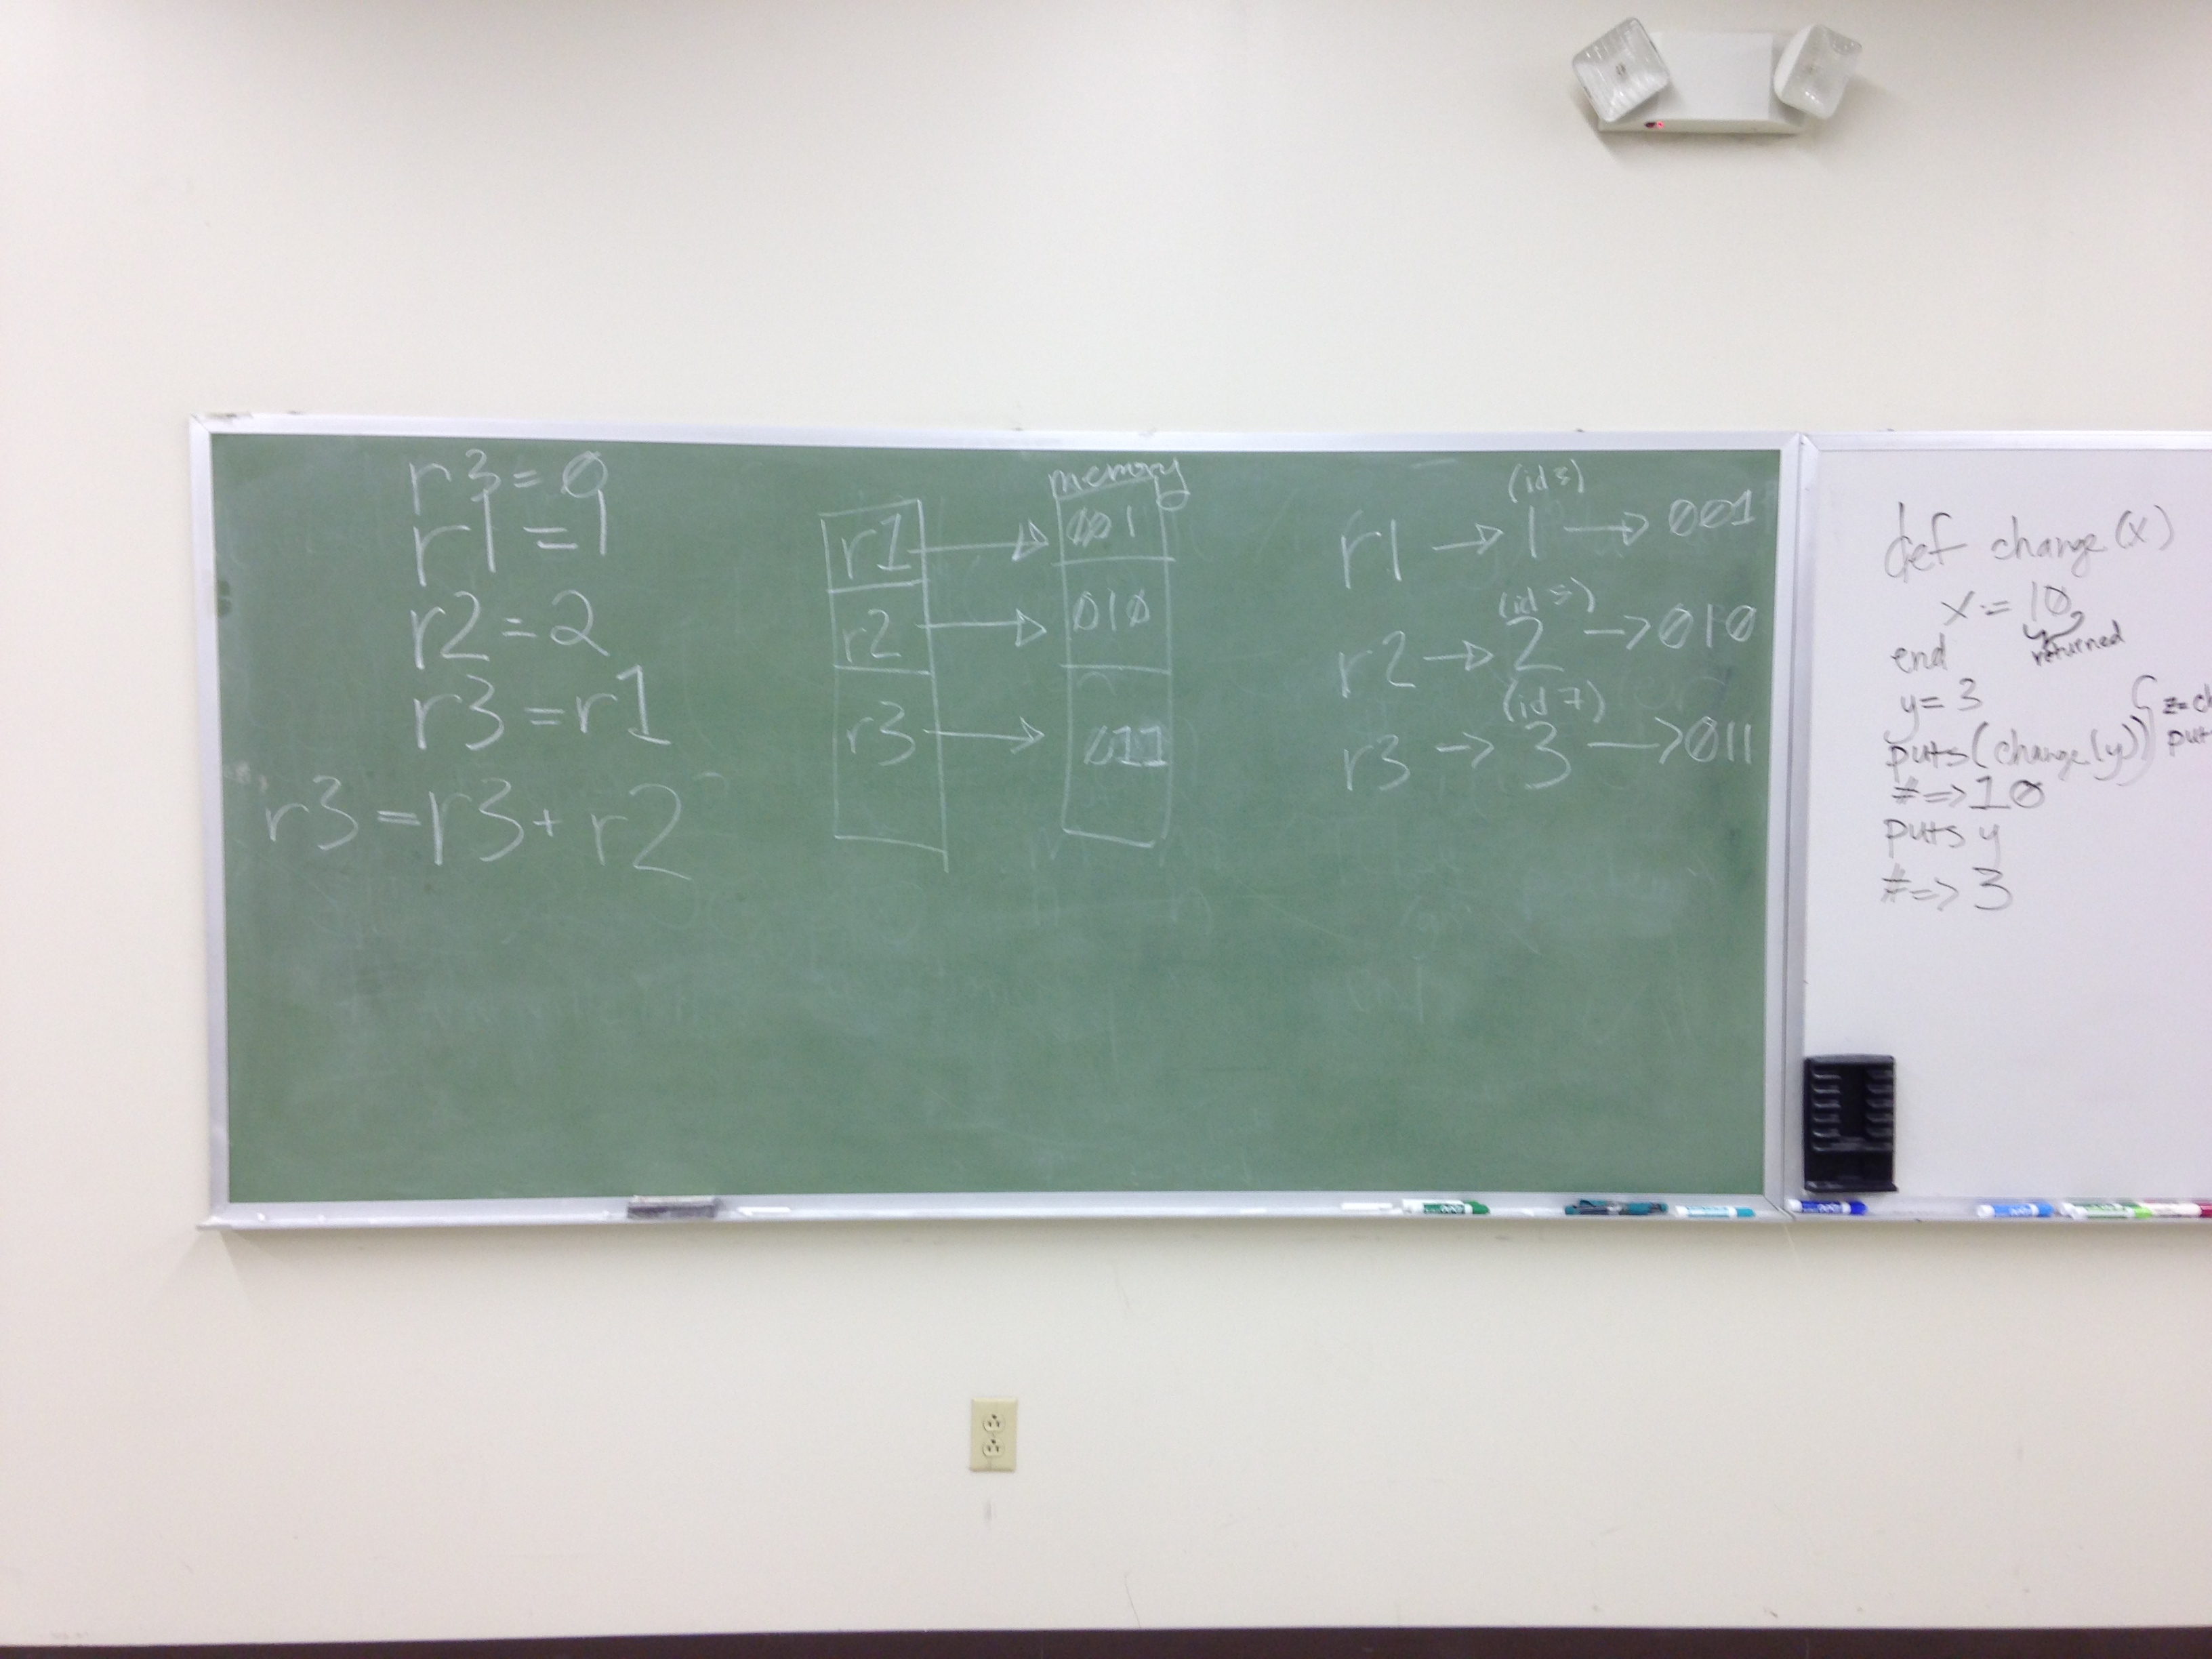 r3 = 0
r1 = 1
r2 = 2
r3 = r1
r3 = r3 + r2
memory
r1 → 001
r2 → 010
r3 → 011
(id 3)
r1 → 1 → 001
(id 5)
r2 → 2 → 010
(id 7)
r3 → 3 → 011
def change(x)
x = 10
returned
end
y = 3
puts(change(y))
#=> 10
puts y
#=> 3